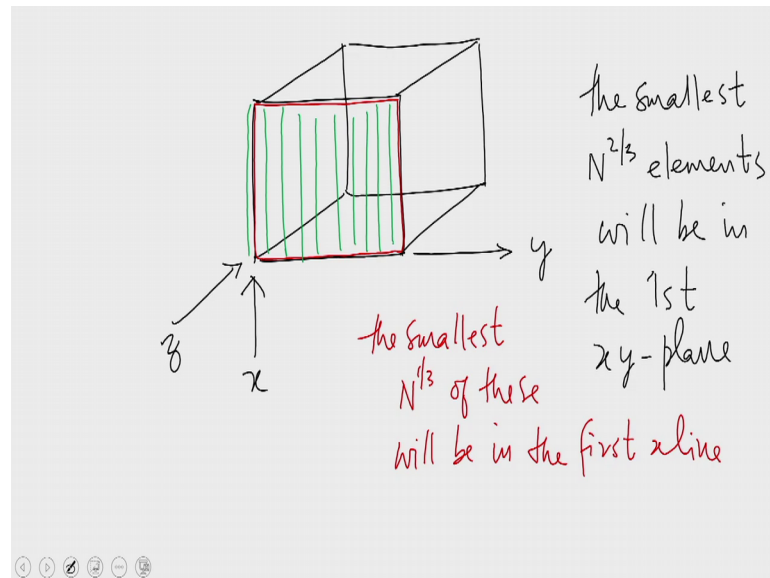 the smallest
N^{2/3} elements
will be in
the 1st
xy-plane
y
z
x
the smallest
N^{1/3} of these
will be in the first xline